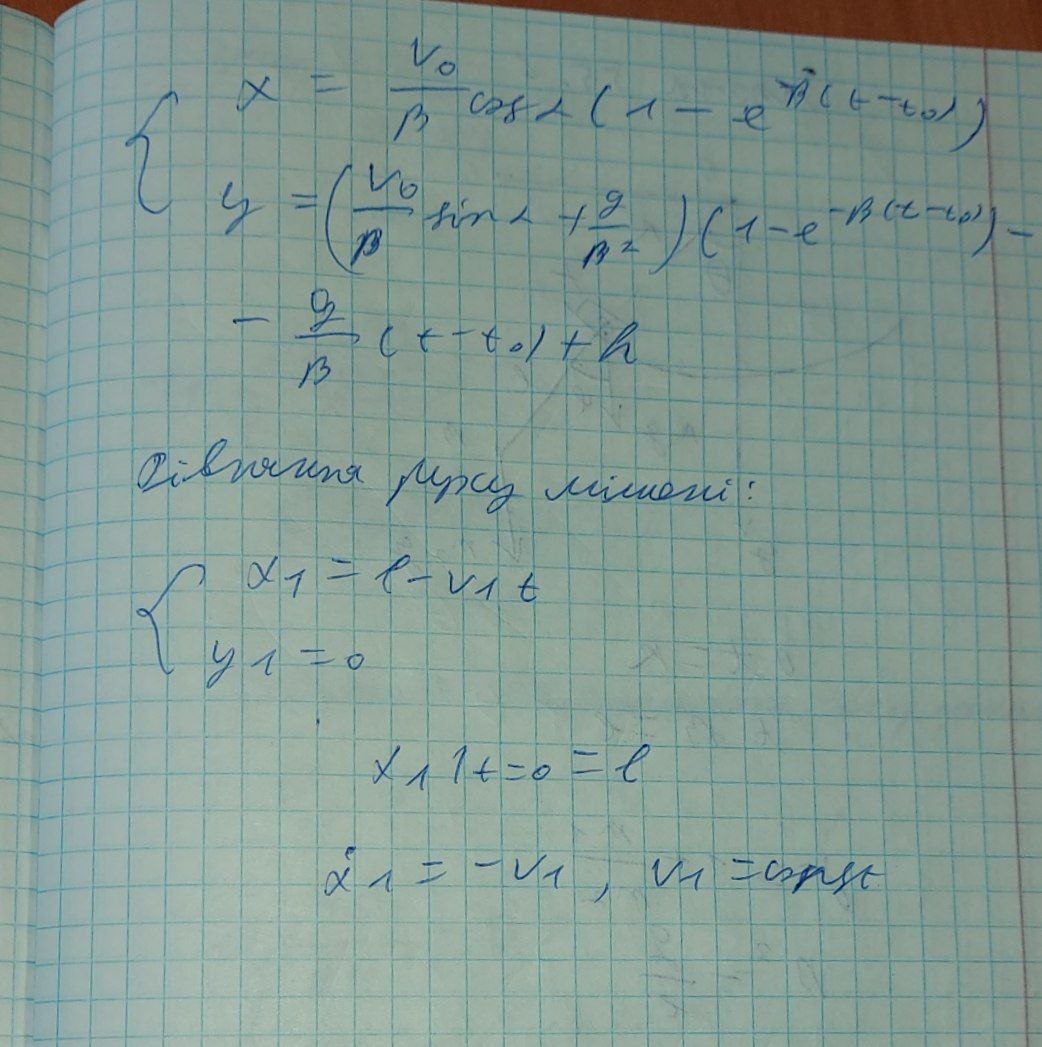 x = v₀/β cos α (1 − e^(−β(t−t₀)))
y = (v₀/β sin α + g/β²)(1 − e^(−β(t−t₀)) −
− g/β (t − t₀) + h
Рівняння руху мішені:
x₁ = l − v₁t
y₁ = 0
x₁|t=0 = l
ẋ₁ = −v₁, v₁ = const